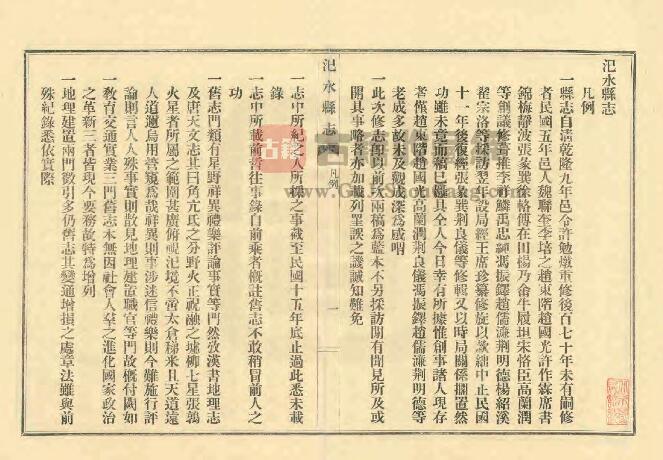 汜水縣志
凡例
一縣志自清乾隆九年邑令許勉燉重修後百七十年未有嗣修
者民國五年邑人魏聯奎李培之趙東階趙國光許作霖席書
錦梅靜波張象巽徐恪傅在田楊乃俞牛履垣朱恪臣高蘭潤
等創議修葺推李祥麟禹忠純馮振鐸趙儒濂荆明德楊紹溪
翟宗洛等採訪翌年設局經王席珍纂修旋以欵絀中止民國
十一年後復經張象巽荆良儀等修輯又以時局關係擱置然
功雖未竟而稿已麤具全人今日幸有所據惟創事諸人現存
者僅趙東階趙國光高蘭潤荆良儀馮振鐸趙儒濂荆明德等
老成多故未及觀成深爲感喟
一此次修志卽以前次兩稿爲藍本不另採訪間有聞見所及或
開具事略者亦加識列罣誤之譏誠知難免
一志中所紀之人所採之事截至民國十五年底止過此悉未載
錄
一志中所載前哲往事錄自前乘者概註舊志不敢稍冒前人之
功
一舊志門類有星野祥異禮樂評論事實等門然攷漢書地理志
及唐天文志其曰角亢氐之分野火正祝融之墟柳七星張鶉
火星者所屬之範圍甚廣俯視汜境不啻太倉稊米且天道遠
人道邇烏用瞢窺爲哉祥異則事涉迷信禮樂則今難施行評
論則言人人殊事實則散見地理建置職官等門故概付闕如
一敎育交通實業三門舊志本無因社會人羣之進化國家政治
之革新三者皆現今要務故特爲增列
一地理建置兩門徵引多仍舊志其變通增損之處章法雖與前
殊紀錄悉依實際
汜水縣志
卷
凡例
一
古籍
www.GuJiShuWang.com